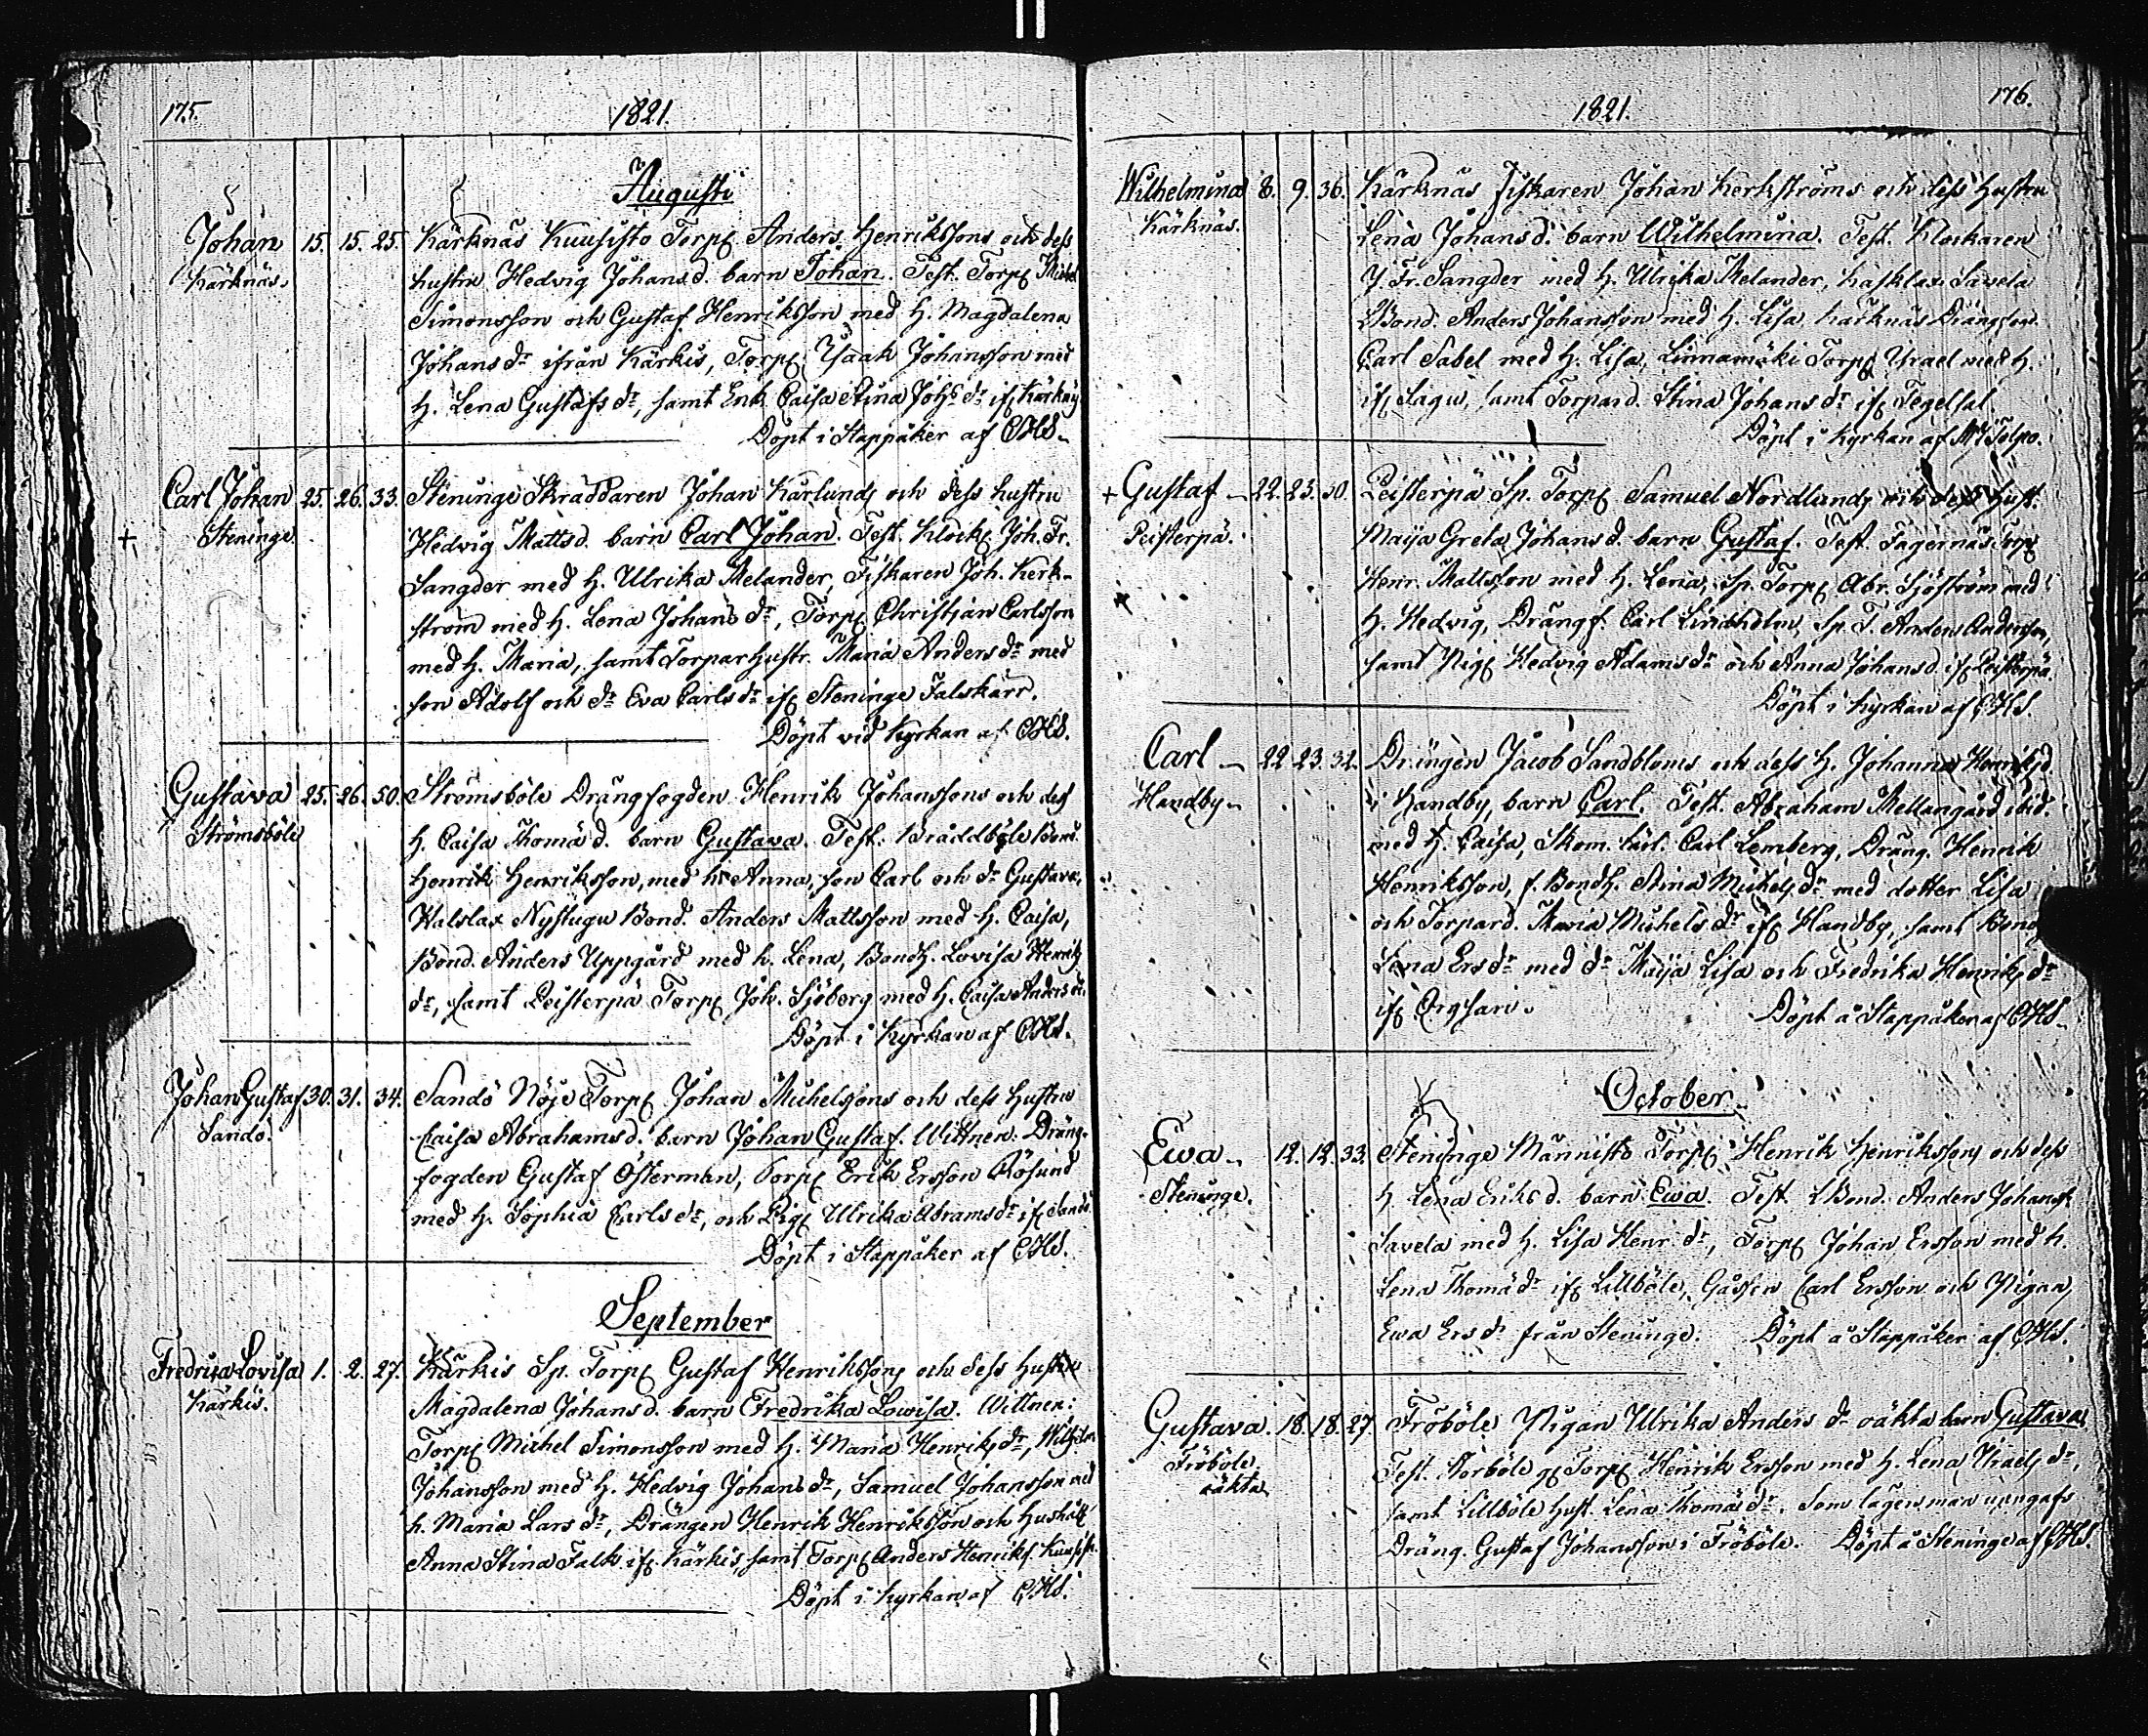 175.
1821.
Augusti
Johan 15. 15. 25. Kärknäs Kuusisto Torp. Anders Henrikssons och dess
Kärknäs. hustru Hedvig Johansd. barn Johan. Test. Torp. Michel
Simonsson och Gustaf Henriksson med h. Magdalena
Johans dr ifrån Kärkis, Torp. Isaak Johansson med
h. Lena Gustafs dr, samt Enk. Caisa Stina Johs dr if. Kärknäs
Döpt i Stappåker af CHS.
Carl Johan 25. 26. 33. Steninge Skräddaren Johan Karlunds och dess hustru
+ Steninge Hedvig Mattsd. barn Carl Johan. Test. Klock. Joh. Fr.
Sangder med h. Ulrika Melander, Fiskaren Joh. Kerk-
ström med h. Lena Johans dr, Torp. Christian Carlsson
med h. Maria, samt Torparhustr. Maria Anders dr med
son Adolf och dr Eva Carls dr if. Steninge Falskärr.
Döpt vid Kyrkan af CHS.
Gustava 25. 26. 50. Strömsböle Drängfogden Henrik Johanssons och dess
Strömsböle h. Caisa Thomæ d. barn Gustava. Test. Bräddböle Bond.
Henrik Henriksson, med h. Anna, son Carl och dr Gustava,
Walslax Nystugu Bond. Anders Mattsson med h. Caisa,
Bond. Anders Uppgård med h. Lena, Bondh. Lovisa Henriks
dr, samt Peisterpä Torp. Joh. Sjöberg med h. Caisa Anders dr.
Döpt i Kyrkan af CHS.
Johan Gustaf 30. 31. 34. Sandö Nöje Torp. Johan Michelssons och dess hustru
Sandö. Caisa Abrahamsd. barn Johan Gustaf. Wittnen: Dräng-
fogden Gustaf Österman, Torp. Erik Ersson Rösund
med h. Sophia Carls dr, och Pig. Ulrika Abrams dr if. Sandö.
Döpt i Stappåker af CHS.
September
Fredrica Lovisa 1. 2. 27. Kärkis Sp. Torp. Gustaf Henrikssons och dess hustru
Kärkis. Magdalena Johansd. barn Fredrika Lowisa. Wittnen:
Torp. Michel Simonsson med h. Maria Henriks dr, Wilhelm
Johansson med h. Hedvig Johans dr, Samuel Johansson med
h. Maria Lars dr, Drängen Henrik Henriksson och Hushåll.
Anna Stina Falk if. Kärkis, samt Torp. Anders Henrikss. Kuusisto
Döpt i Kyrkan af CHS.
1821.
176.
Wilhelmina 8. 9. 36. Kärknäs Fiskaren Johan Kerkströms och dess hustru
Kärknäs. Lena Johansd. barn Wilhelmina. Test. Klockaren
J. Fr. Sangder med h. Ulrika Melander, Kasklax Savela
LBond. Anders Johansson med h. Lisa, Kärknäs Drängfogd.
Carl Sabel med h. Lisa, Linnamäki Torp. Israel med h.
if. Sagu, samt Torpard. Stina Johans dr if. Tegelsal.
Döpt i Kyrkan af Mr Tolpo.
+ Gustaf 22. 23. 30. Peisterpä Sp. Torp. Samuel Nordlunds och dess Hust.
Peisterpä. Maija Greta Johansd. barn Gustaf. Test. Fagernäs Torp.
Henr. Mattsson med h. Lena, Sp. Torp. Abr. Sjöström med
h. Hedvig, Drängf. Carl Lindholm, Sp. T. Anders Andersson,
samt Pig. Hedvig Adams dr och Anna Johansd. if. Peisterpä.
Döpt i Kyrkan af CHS.
Carl 22 23. 32. Drängen Jacob Sandbloms och dess h. Johanna Henriksd.
Handby i Handby, barn Carl. Test. Abraham Mellangård ibid.
med h. Caisa, Skom. lärl. Carl Lemberg, Dräng. Henrik
Henriksson, f. Bondh. Stina Michels dr med dotter Lisa
och Torpard. Maria Michels dr if. Handby, samt Bondh.
Lena Ers dr med dr Maija Lisa och Fredrika Henriks dr
if. Orgsari. Döpt å Stappåker af CHS.
October
Ewa 12. 12. 33. Steninge Männistö Torp. Henrik Henrikssons och dess
Steninge. h. Lena Eriks d. barn Ewa. Test. LBond. Anders Johanss.
Savela med h. Lisa Henr. dr, Torp. Johan Ersson med h.
Lena Thomæ dr if. Lillböle, Gossen Carl Ersson och Pigan
Ewa Ers dr från Steninge. Döpt å Stappåker af CHS.
Gustava. 18. 18. 27. Fröböle Pigan Ulrika Anders dr oäkta barn Gustava,
Fröböle. Test. Storböle Torp. Henrik Ersson med h. Lena Israels dr,
oäkta samt Lillböle Hust. Lena Thomæ dr. Som lägersman uppgafs
Dräng. Gustaf Johansson i Fröböle. Döpt å Steninge af CHS.